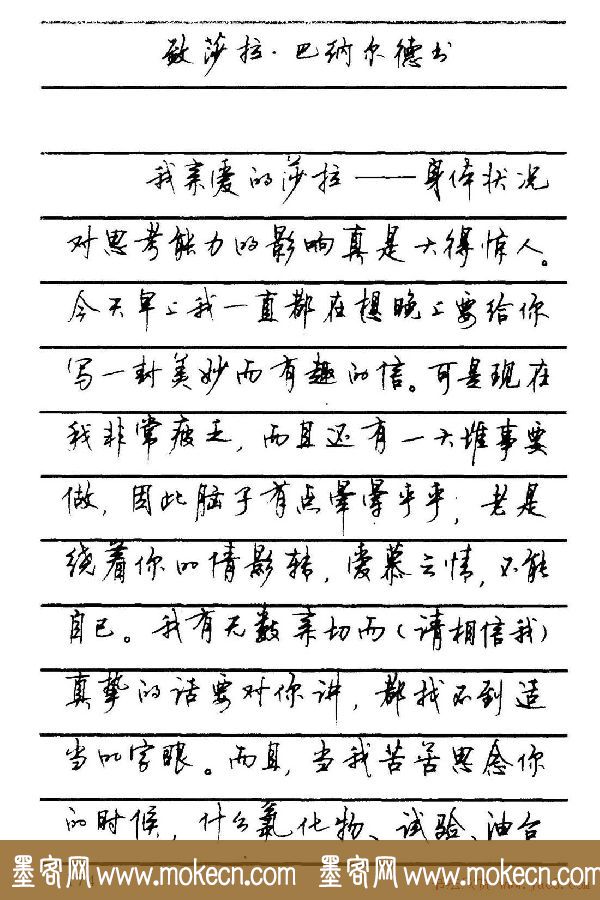 致莎拉·巴纳尔德书
我亲爱的莎拉——身体状况
对思考能力的影响真是大得惊人。
今天早上我一直都在想晚上要给你
写一封美妙而有趣的信。可是现在
我非常疲乏，而且还有一大堆事要
做，因此脑子有点晕晕乎乎；老是
绕着你的倩影转，爱慕之情，不能
自已。我有无数亲切而（请相信我）
真挚的话要对你讲，都找不到适
当的字眼。而且，当我苦苦思念你
的时候，什么氯化物、试验、油台
墨客网 www.mokecn.com 墨客网 www.mokecn.com